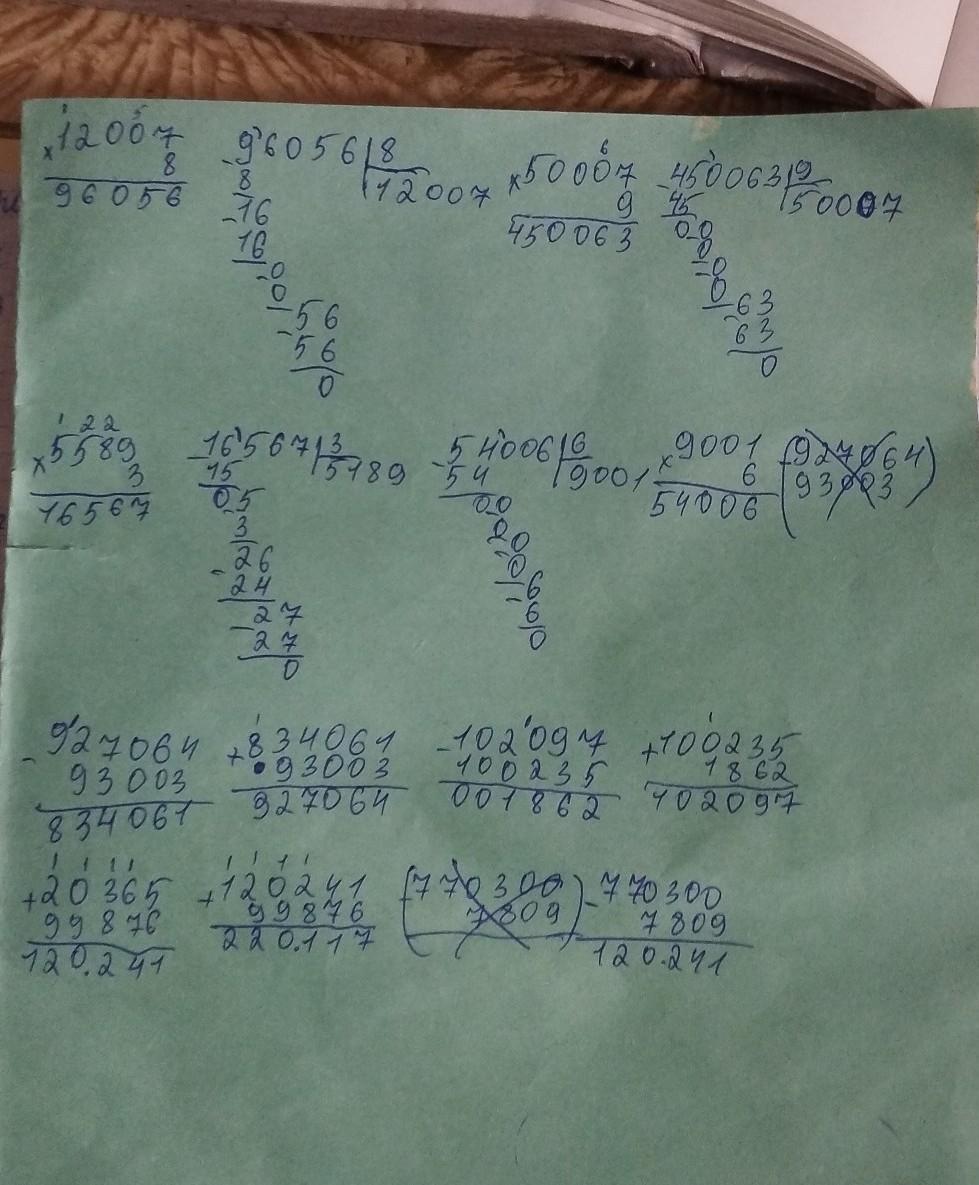 ×12007
8
96056
-96056|8
8 12007
-16
16
-0
0
-56
56
0
×50007
9
450063
-450063|9
45 50007
00
0
-0
0
-63
63
0
1 2 2
×5589
3
16567
-16567|3
15 5189
05
3
-26
24
-27
27
0
-54006|6
54 9001
00
0
0
-0
-6
6
0
×9001
6
54006
(-927064
93003)
-927064
93003
834061
+834061
93003
927064
-102097
100235
001862
+100235
1862
102097
1 1 1 1
+20365
99876
120.241
1 1 1 1
+120241
99876
220.117
(770300
7809)
-770300
7809
120.241